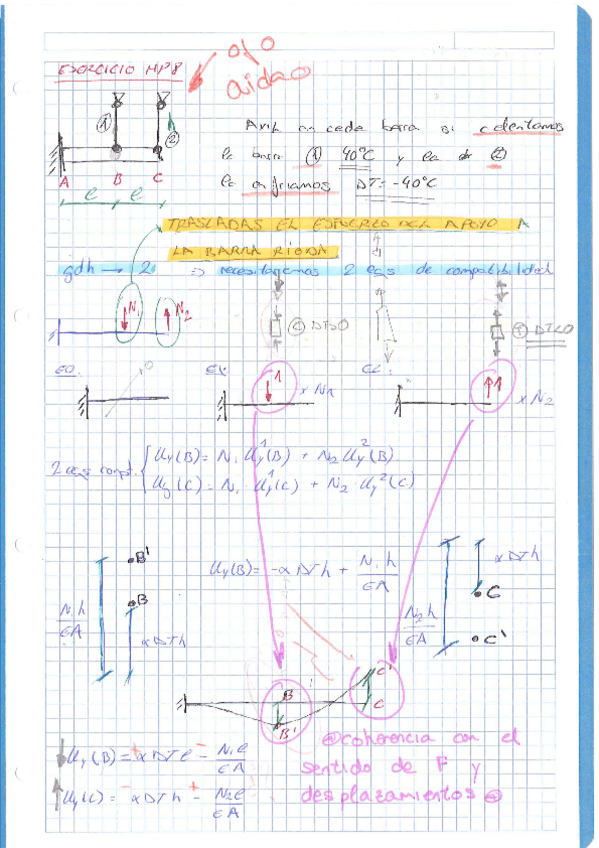 EJERCICIO Nº8
ojo
cuidao
① ②
Axil en cada barra si calentamos
la barra ① 40ºC y la de ②
la enfriamos DT = -40ºC
A B C
e e
TRASLADAS EL ESFUERZO DEL APOYO A
LA BARRA RÍGIDA
gdh → 2 ⇒ necesitaremos 2 eqs de compatibilidad
N₁ N₂
⊕ DT>0
⊕ DT<0
E0: 0
E1: 1 x N1
E2: 1 x N2
2 eqs compt. { Uy(B) = N₁ Uy¹(B) + N₂ Uy²(B)
Uy(C) = N₁ · Uy¹(C) + N₂ · Uy²(C)
B'
B
N₁h/EA
αDTh
Uy(B) = -αDTh + N₁h/EA
αDTh
C
N₂h/EA
C'
B C'
B' C
Uy(B) = αDTe - N₁e/EA
Uy(C) = αDTh - N₂e/EA
coherencia con el
sentido de F y
desplazamientos